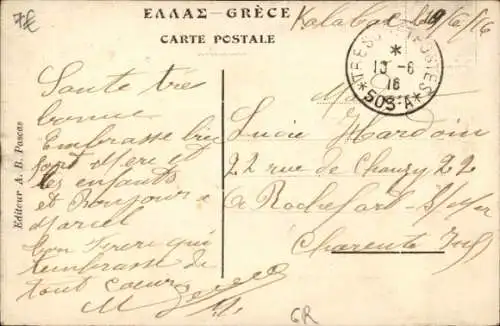 7€
ΕΛΛΑΣ-GRÈCE
CARTE POSTALE
TRESOR ET POSTES
13-6
16
*503-A*
Santé très
bonne
Embrasse bien
Mère et
les enfants
et Bonjour à
Marcel
ton frère qui
t'embrasse de
tout coeur
M
Editeur A. B. Pascas
Lucie Hardoin
22 rue de Chanzy 22
à Rochefort s/Mer
Charente Infre
GR